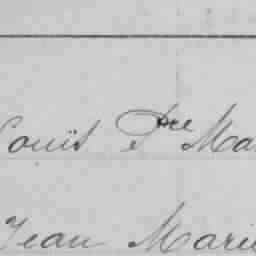 Louis Pre Ma
Jean Marie